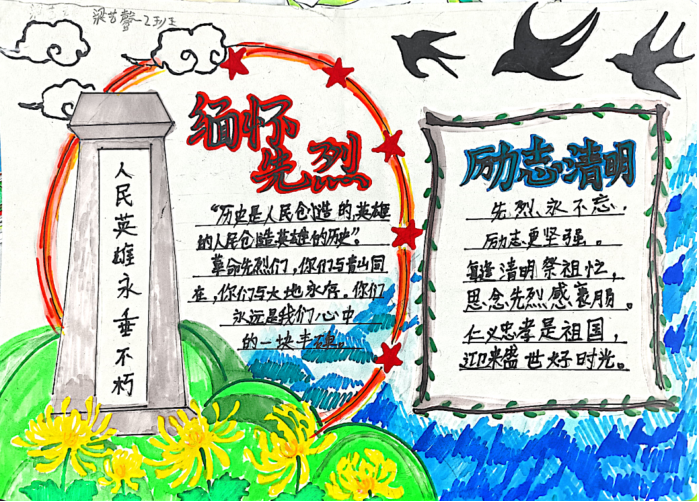 梁艺馨一2班
缅怀
先烈
人民英雄永垂不朽
“历史是人民创造的,英雄
的人民创造英雄的历史”。
革命先烈们,你们与青山同
在,你们与大地永存。你们
永远是我们心中
的一块丰碑。
励志清明
先烈、永不忘,
励志更坚强。
每逢清明祭祖忙,
思念先烈感衷肠。
仁义忠孝是祖国,
迎来盛世好时光。